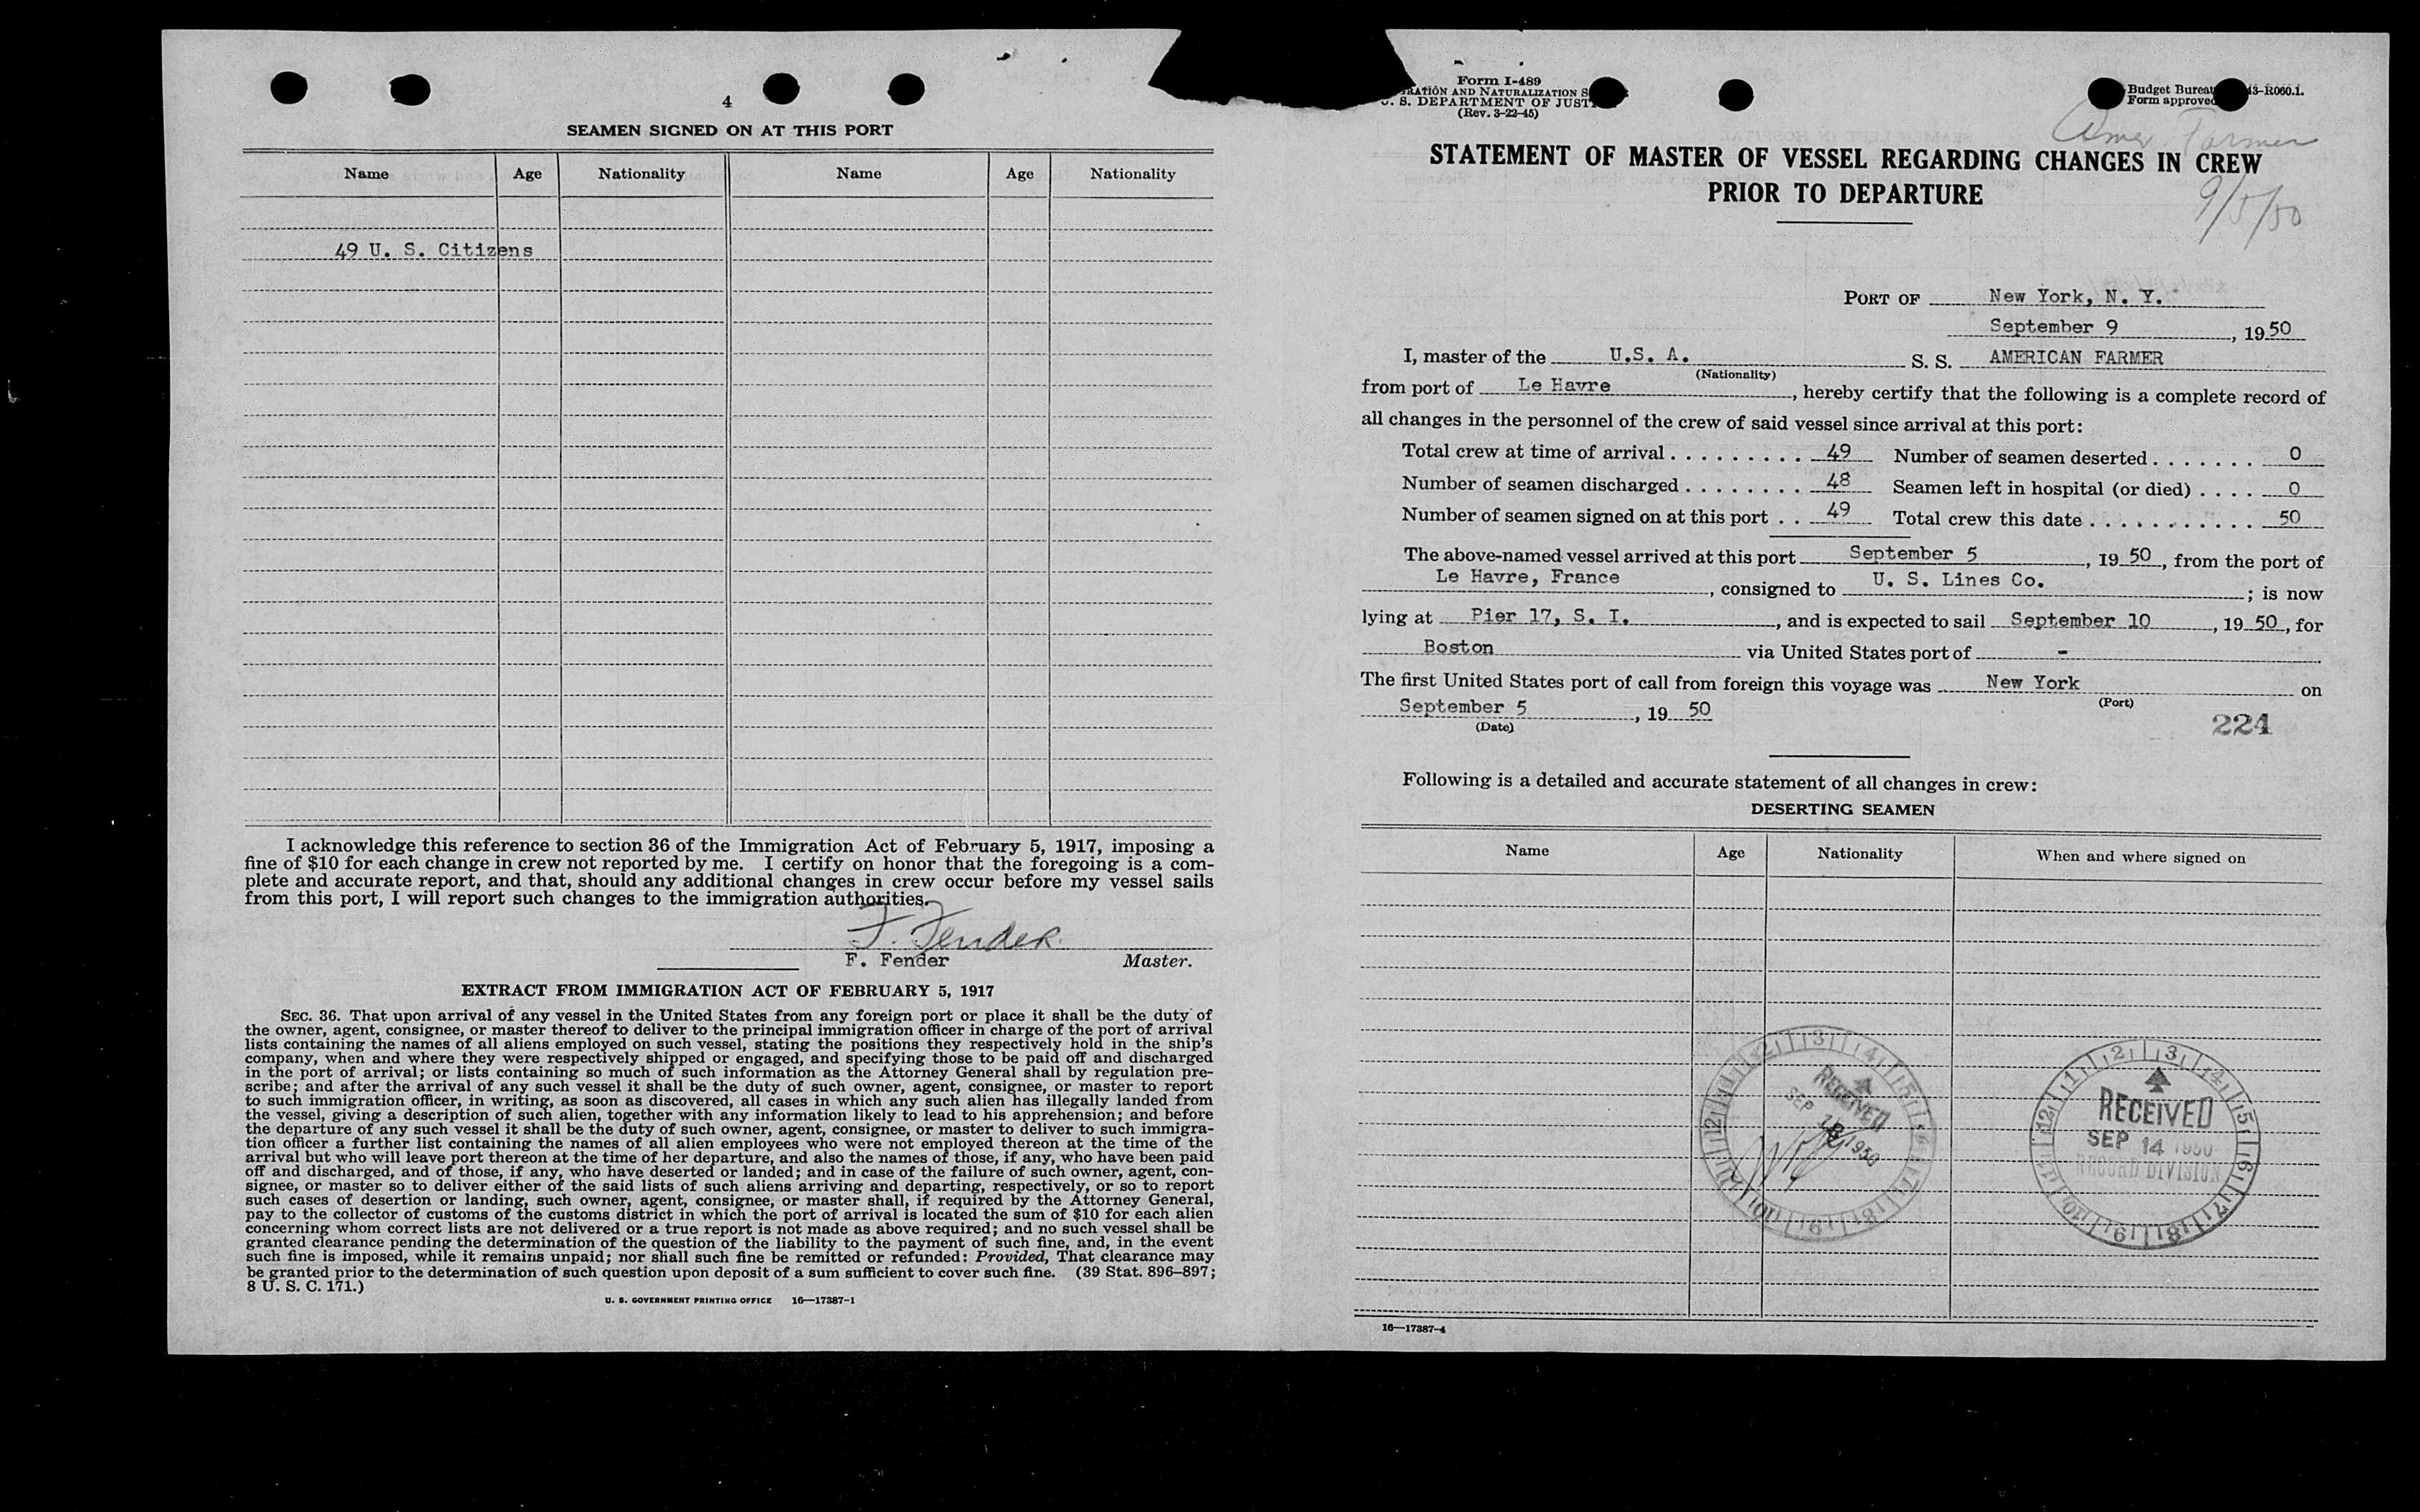 4
SEAMEN SIGNED ON AT THIS PORT
Name Age Nationality Name Age Nationality
49 U. S. Citizens
I acknowledge this reference to section 36 of the Immigration Act of February 5, 1917, imposing a
fine of $10 for each change in crew not reported by me. I certify on honor that the foregoing is a com-
plete and accurate report, and that, should any additional changes in crew occur before my vessel sails
from this port, I will report such changes to the immigration authorities.
F. Fender
F. Fender Master.
EXTRACT FROM IMMIGRATION ACT OF FEBRUARY 5, 1917
SEC. 36. That upon arrival of any vessel in the United States from any foreign port or place it shall be the duty of
the owner, agent, consignee, or master thereof to deliver to the principal immigration officer in charge of the port of arrival
lists containing the names of all aliens employed on such vessel, stating the positions they respectively hold in the ship's
company, when and where they were respectively shipped or engaged, and specifying those to be paid off and discharged
in the port of arrival; or lists containing so much of such information as the Attorney General shall by regulation pre-
scribe; and after the arrival of any such vessel it shall be the duty of such owner, agent, consignee, or master to report
to such immigration officer, in writing, as soon as discovered, all cases in which any such alien has illegally landed from
the vessel, giving a description of such alien, together with any information likely to lead to his apprehension; and before
the departure of any such vessel it shall be the duty of such owner, agent, consignee, or master to deliver to such immigra-
tion officer a further list containing the names of all alien employees who were not employed thereon at the time of the
arrival but who will leave port thereon at the time of her departure, and also the names of those, if any, who have been paid
off and discharged, and of those, if any, who have deserted or landed; and in case of the failure of such owner, agent, con-
signee, or master so to deliver either of the said lists of such aliens arriving and departing, respectively, or so to report
such cases of desertion or landing, such owner, agent, consignee, or master shall, if required by the Attorney General,
pay to the collector of customs of the customs district in which the port of arrival is located the sum of $10 for each alien
concerning whom correct lists are not delivered or a true report is not made as above required; and no such vessel shall be
granted clearance pending the determination of the question of the liability to the payment of such fine, and, in the event
such fine is imposed, while it remains unpaid; nor shall such fine be remitted or refunded: Provided, That clearance may
be granted prior to the determination of such question upon deposit of a sum sufficient to cover such fine. (39 Stat. 896–897;
8 U. S. C. 171.)
U. S. GOVERNMENT PRINTING OFFICE 16—17387-1
Form I-489
AND NATURALIZATION
S. DEPARTMENT OF
(Rev. 3-22-45)
Budget Bureau 43-R060.1.
Form approved
Amer Farmer
STATEMENT OF MASTER OF VESSEL REGARDING CHANGES IN CREW
PRIOR TO DEPARTURE
9/5/50
PORT OF New York, N. Y.
September 9, 1950
I, master of the U.S. A. S. S. AMERICAN FARMER
(Nationality)
from port of Le Havre, hereby certify that the following is a complete record of
all changes in the personnel of the crew of said vessel since arrival at this port:
Total crew at time of arrival . . . . . . . . . 49 Number of seamen deserted . . . . . . . 0
Number of seamen discharged . . . . . . . . 48 Seamen left in hospital (or died) . . . . 0
Number of seamen signed on at this port . . 49 Total crew this date . . . . . . . . . . . 50
The above-named vessel arrived at this port September 5, 19 50, from the port of
Le Havre, France, consigned to U. S. Lines Co.; is now
lying at Pier 17, S. I., and is expected to sail September 10, 19 50, for
Boston via United States port of -
The first United States port of call from foreign this voyage was New York on
(Port)
September 5, 19 50
(Date)
224
Following is a detailed and accurate statement of all changes in crew:
DESERTING SEAMEN
Name Age Nationality When and where signed on
RECEIVED
SEP 1950
RECEIVED
SEP 14 1950
RECORD DIVISION
16—17387-4